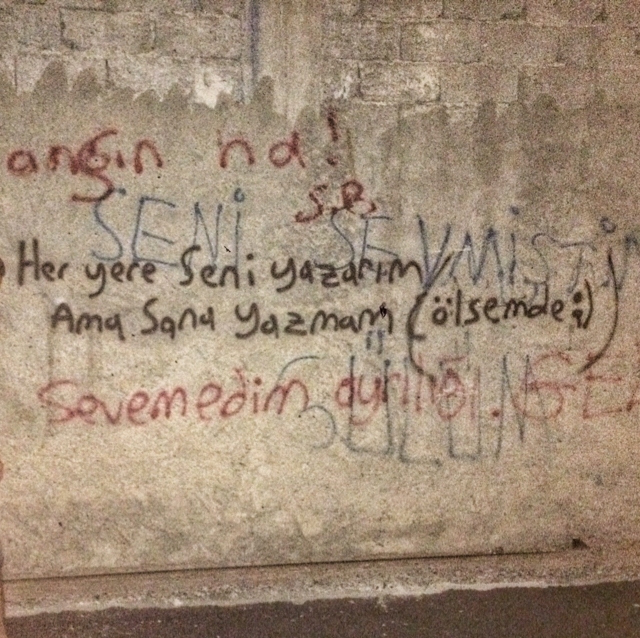 angın na!
S.B.
SENİ SEVMİŞTİM
Her yere Seni yazarım
Ama Sana Yazmam (ölsemde;)
Sevemedim ayrılığı. SE
GÜLÜM